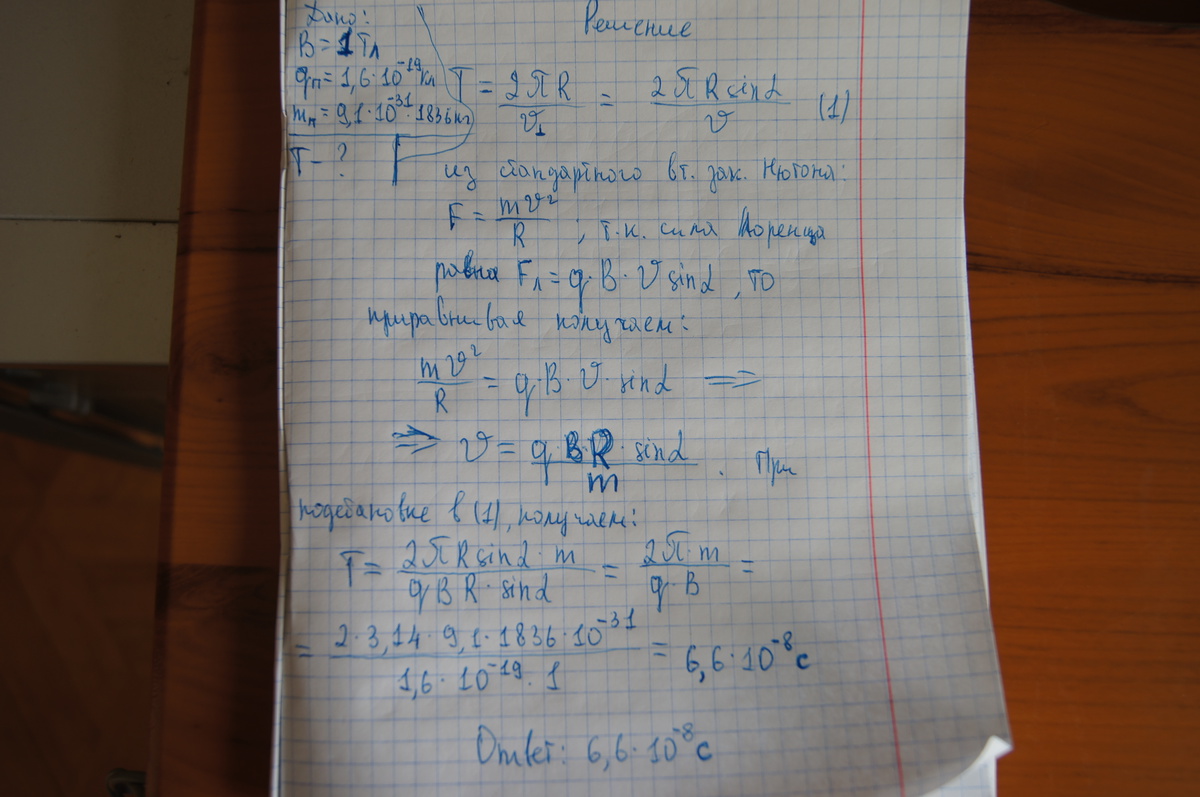 Дано:
Решение
B = 1 Тл
qп = 1,6·10⁻¹⁹ Кл
mп = 9,1·10⁻³¹·1836 кг
T - ?
T = 2πR/v⊥ = 2πR sinα/v (1)
из стандартного вт. зак. Нютона:
F = mv²/R ; т.к. сила Лоренца
равна Fл = q·B·v sinα, то
приравнивая получаем:
mv²/R = q·B·v·sinα =>
=> v = q·B·R·sinα/m . При
подстановке в (1), получаем:
T = 2πR sinα·m/qBR·sinα = 2π·m/q·B =
= 2·3,14·9,1·1836·10⁻³¹/1,6·10⁻¹⁹·1 = 6,6·10⁻⁸ с
Ответ: 6,6·10⁻⁸ с